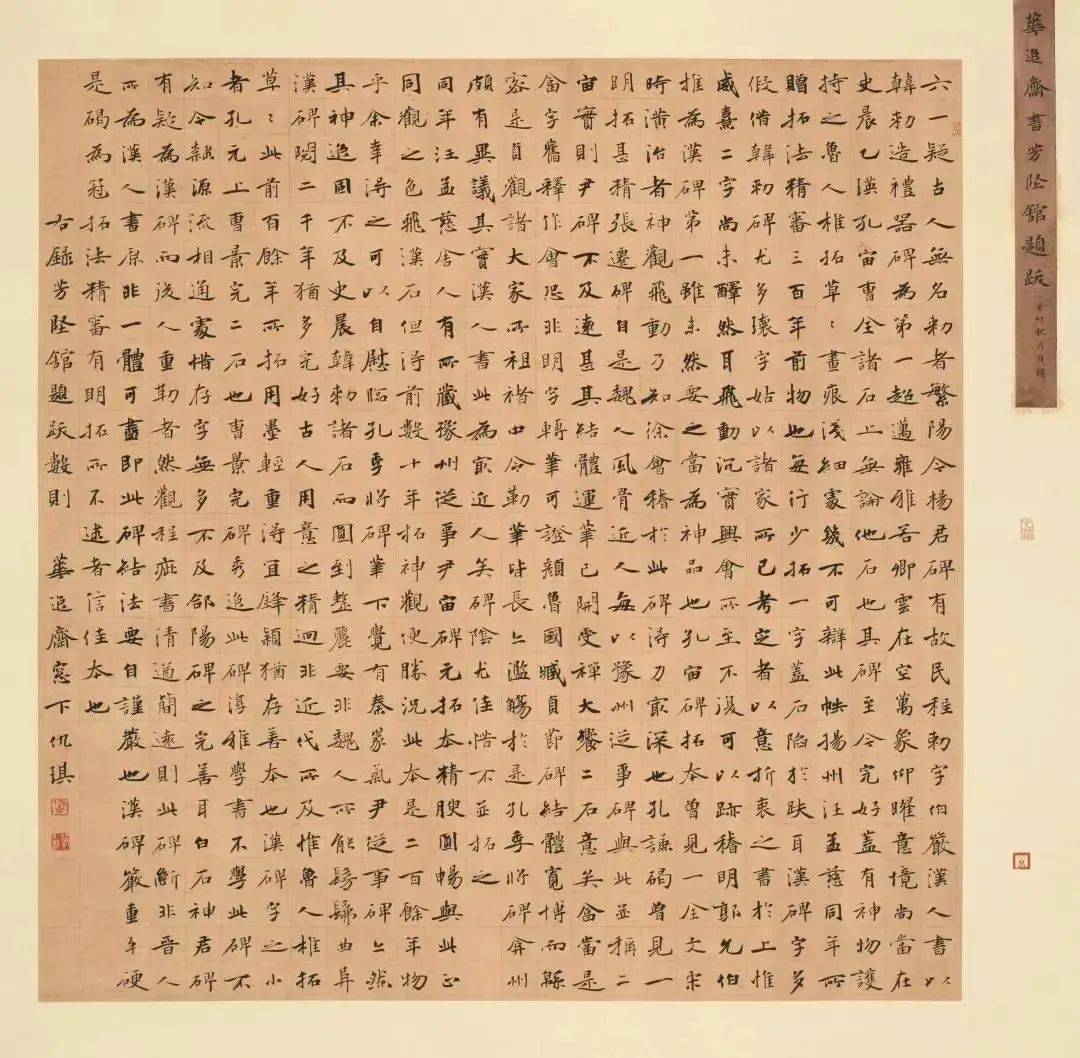 華逸齋書芳堅館題跋
六一疑古人無名勅者繁陽令楊君碑有故民程勅字伯嚴漢人書以
韓勅造禮器碑為第一超邁雍雅若卿雲在空萬象仰曜意境尚當在
史晨乙瑛孔宙曹全諸石上無論他石也其碑至今完好蓋有神物護
持之魯人椎拓草〻畫痕淺細處幾不可辯此帙揚州汪孟慈同年所
贈拓法精審三百年前物也每行少拓一字蓋石陷於趺耳漢碑字多
假借韓勅碑尤多瓌字姑以諸家所已考定者以意折衷之書於上惟
咸熹二字尚未醳然耳飛動沉實興會所至不復可以跡稽明郭允伯
推為漢碑第一雖未然要之當為神品也孔宙碑拓本曾見一全文宋
時潢治者神觀飛動乃知徐會稽於此碑得力㝡深也孔謙碣曾見一
明拓甚精張遷碑自是魏人風骨近人每以豫州從事碑與此並稱二
宙實則尹碑不及遠甚其結體運筆已開受禪大饗二石意矣畣當是
畣字舊釋作會恐非明字轉筆可證顏魯國臧貞節碑結體寬博而緜
密是貞觀諸大家所祖褚中令勒筆皆長亦濫觴於是孔季將碑弇州
頗有異議其實漢人書此為㝡近人矣碑陰尤佳惜不並拓之
同年汪孟慈舍人有所藏豫州從事尹宙碑元拓本精腴圓暢與此正
同觀之色飛漢石但得前數十年拓神觀便勝況此本是二百餘年物
乎余幸得之可以自慰臨孔季將碑筆下覺有秦篆氣尹從事碑亦然
其神逸固不及史晨韓勅諸石而圓到整麗要非魏人所能髣髴曲阜
漢碑閱二千年猶多完好古人用意之精迥非近代所及惟魯人椎拓
草〻此前百餘年所拓用墨輕重得宜鋒穎猶存善本也漢碑字之小
者孔元上曹景完二石也曹景完碑秀逸此碑淳雅學書不學此碑不
知今隸源流相通處惜存字無多不及郃陽碑之完善耳白石神君碑
有疑為漢碑而後人重勒者然觀程疵書清遒簡遠則此碑斷非晉人
所為漢人書原非一體可盡即此碑結法要自謹嚴也漢碑嚴重平硬
是碣為冠拓法精審有明拓所不逮者信佳本也
右錄芳堅館題跋數則 華逸齋窓下仇琪